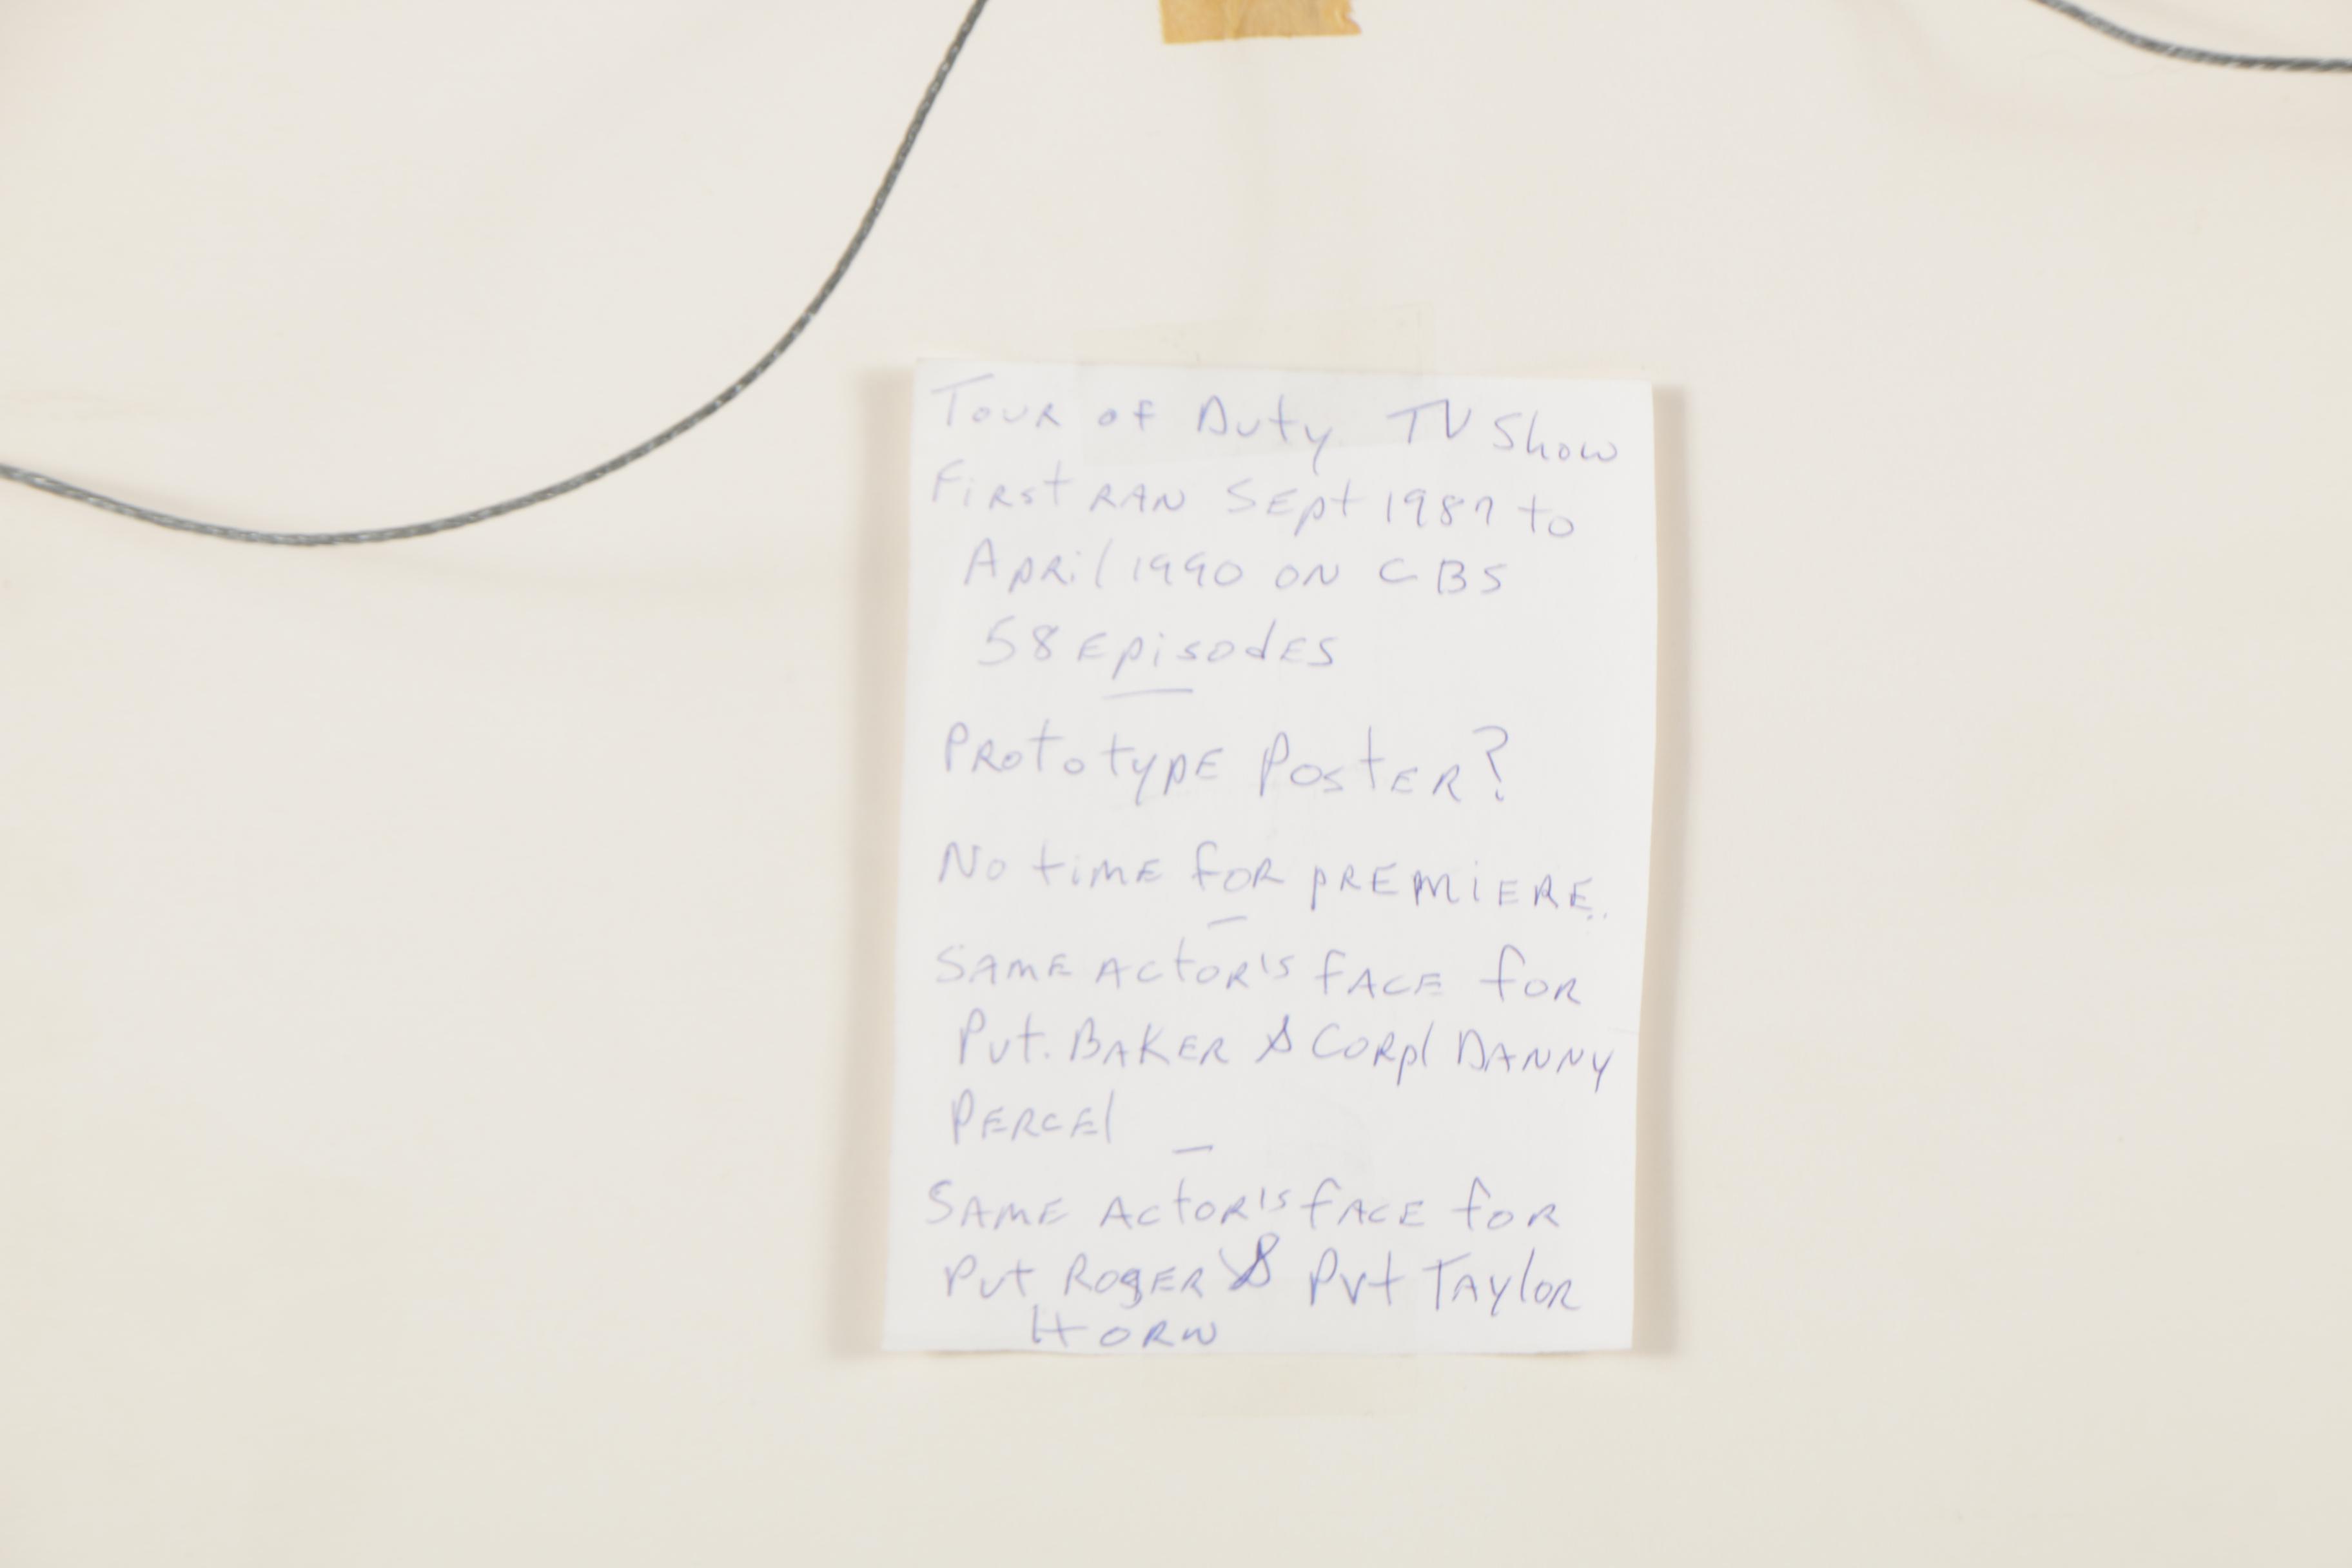 Tour of Duty TV Show
First ran Sept 1987 to
April 1990 on CBS
58 Episodes
Prototype Poster?
No time for premiere.
Same actor's face for
Pvt. Baker & Corpl Danny
Percel
Same actor's face for
Pvt Roger & Pvt Taylor
Horn